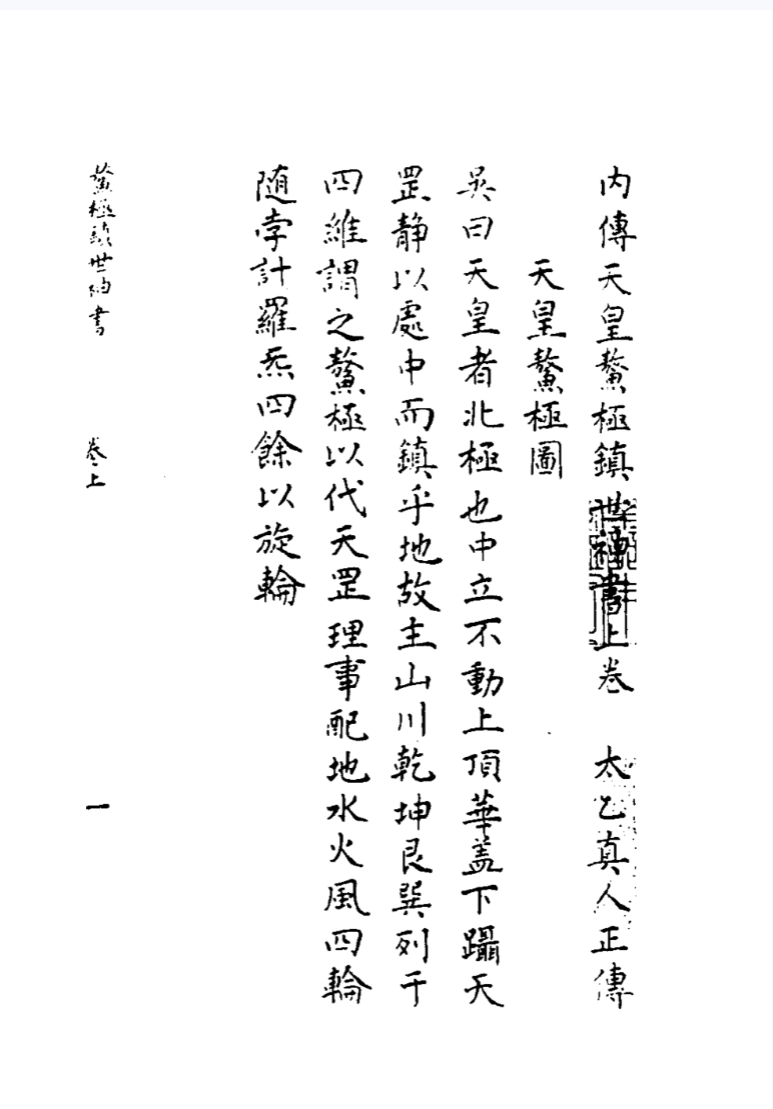 内傳天皇鰲極鎮世神書上卷　太乙真人正傳
天皇鰲極圖
吳曰天皇者北極也中立不動上頂華蓋下躡天
罡靜以處中而鎮乎地故主山川乾坤艮巽列于
四維謂之鰲極以代天罡理事配地水火風四輪
隨孛計羅炁四餘以旋輪
鰲極鎮世神書　卷上　一